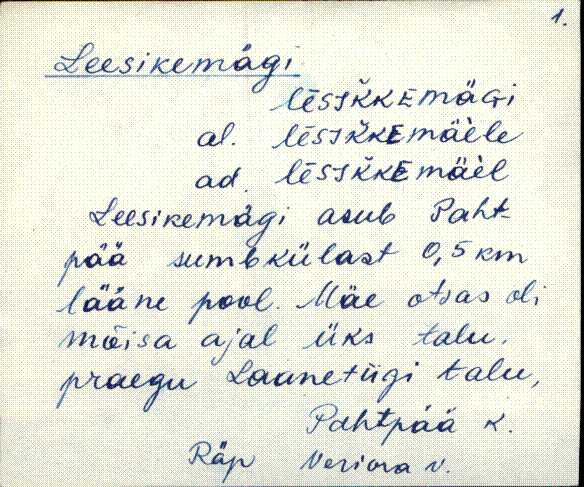 1.
Leesikemägi
lēsᴉk̆kᴇmäGi
al. lēsᴉk̆kᴇmäèle
ad. lēsᴉk̆kᴇmäèl
Leesikemägi asub Paht-
pää sumbkülast 0,5 km
lääne pool. Mäe otsas oli
mõisa ajal üks talu,
praegu Laanetiigi talu,
Pahtpää k.
Räp Veriora v.